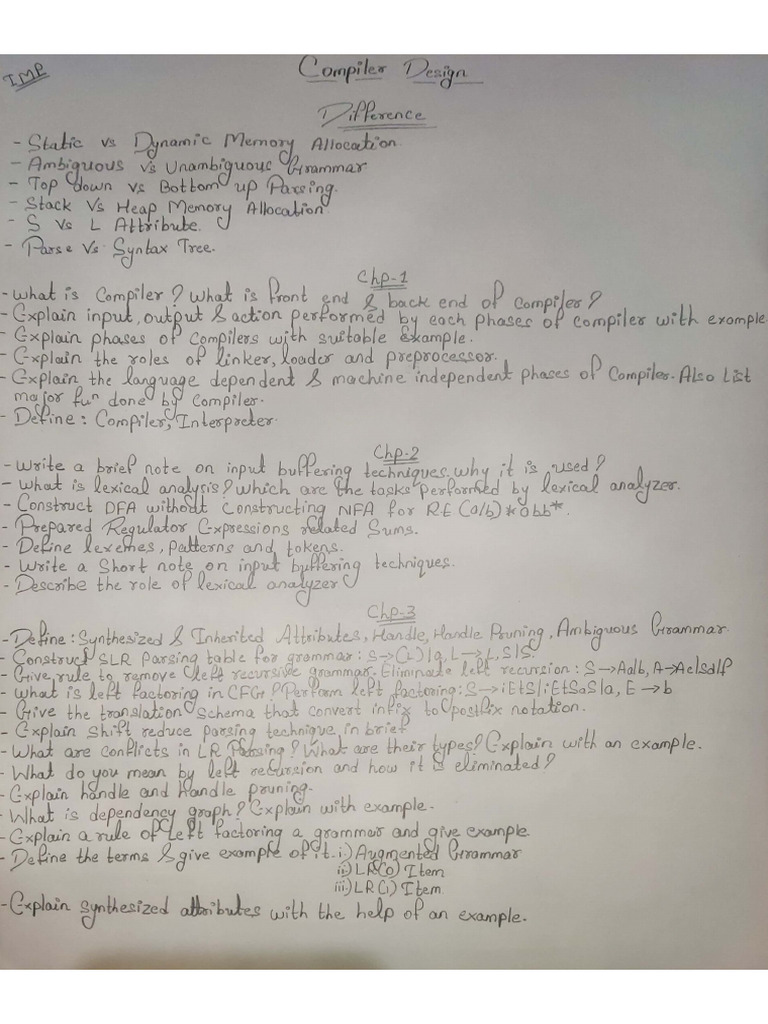 IMP
Compiler Design
Difference
- Static vs Dynamic Memory Allocation.
- Ambiguous vs Unambiguous Grammar
- Top down vs Bottom up Parsing.
- Stack Vs Heap Memory Allocation.
- S vs L Attribute.
- Parse Vs Syntax Tree.
Chp-1
- What is Compiler? What is front end & back end of compiler?
- Explain input, output & action performed by each phases of compiler with exomple
- Explain phases of compilers with suitable Example.
- Explain the roles of linker, loader and preprocessor.
- Explain the language dependent & machine independent phases of Compiler. Also List
major fun done by compiler.
- Define: Compiler, Interpreter.
Chp-2
- Write a brief note on input buffering techniques. why it is used?
- What is lexical analysis? which are the tasks performed by lexical analyzer.
- Construct DFA without Constructing NFA for R.E (a/b)*abb*.
- Prepared Regulator Expressions related Sums.
- Define lexemes, patterns and tokens.
- Write a Short note on input buffering techniques.
- Describe the role of lexical analyzer
Chp-3
- Define: Synthesized & Inherited Attributes, Handle, Handle Pruning, Ambiguous Grammar
- Construct SLR Parsing table for grammar: S→(L)|a, L→L,S|S.
- Give rule to remove left recursive grammar. Eliminate left recursion: S→Aa|b, A→Ac|Sd|f
- What is left factoring in CFG? Perform left factoring: S→iEtS|iEtSaS|a, E→b
- Give the translation schema that convert infix to postfix notation.
- Explain Shift reduce parsing technique in brief
- What are conflicts in LR Parsing? What are their types? Explain with an example.
- What do you mean by left recursion and how it is eliminated?
- Explain handle and handle pruning.
- What is dependency graph? Explain with example.
- Explain a rule of Left factoring a grammar and give example.
- Define the terms & give example of it. i.) Augmented Grammar
ii.) LR(0) Item
iii.) LR(1) Item.
- Explain Synthesized attributes with the help of an example.